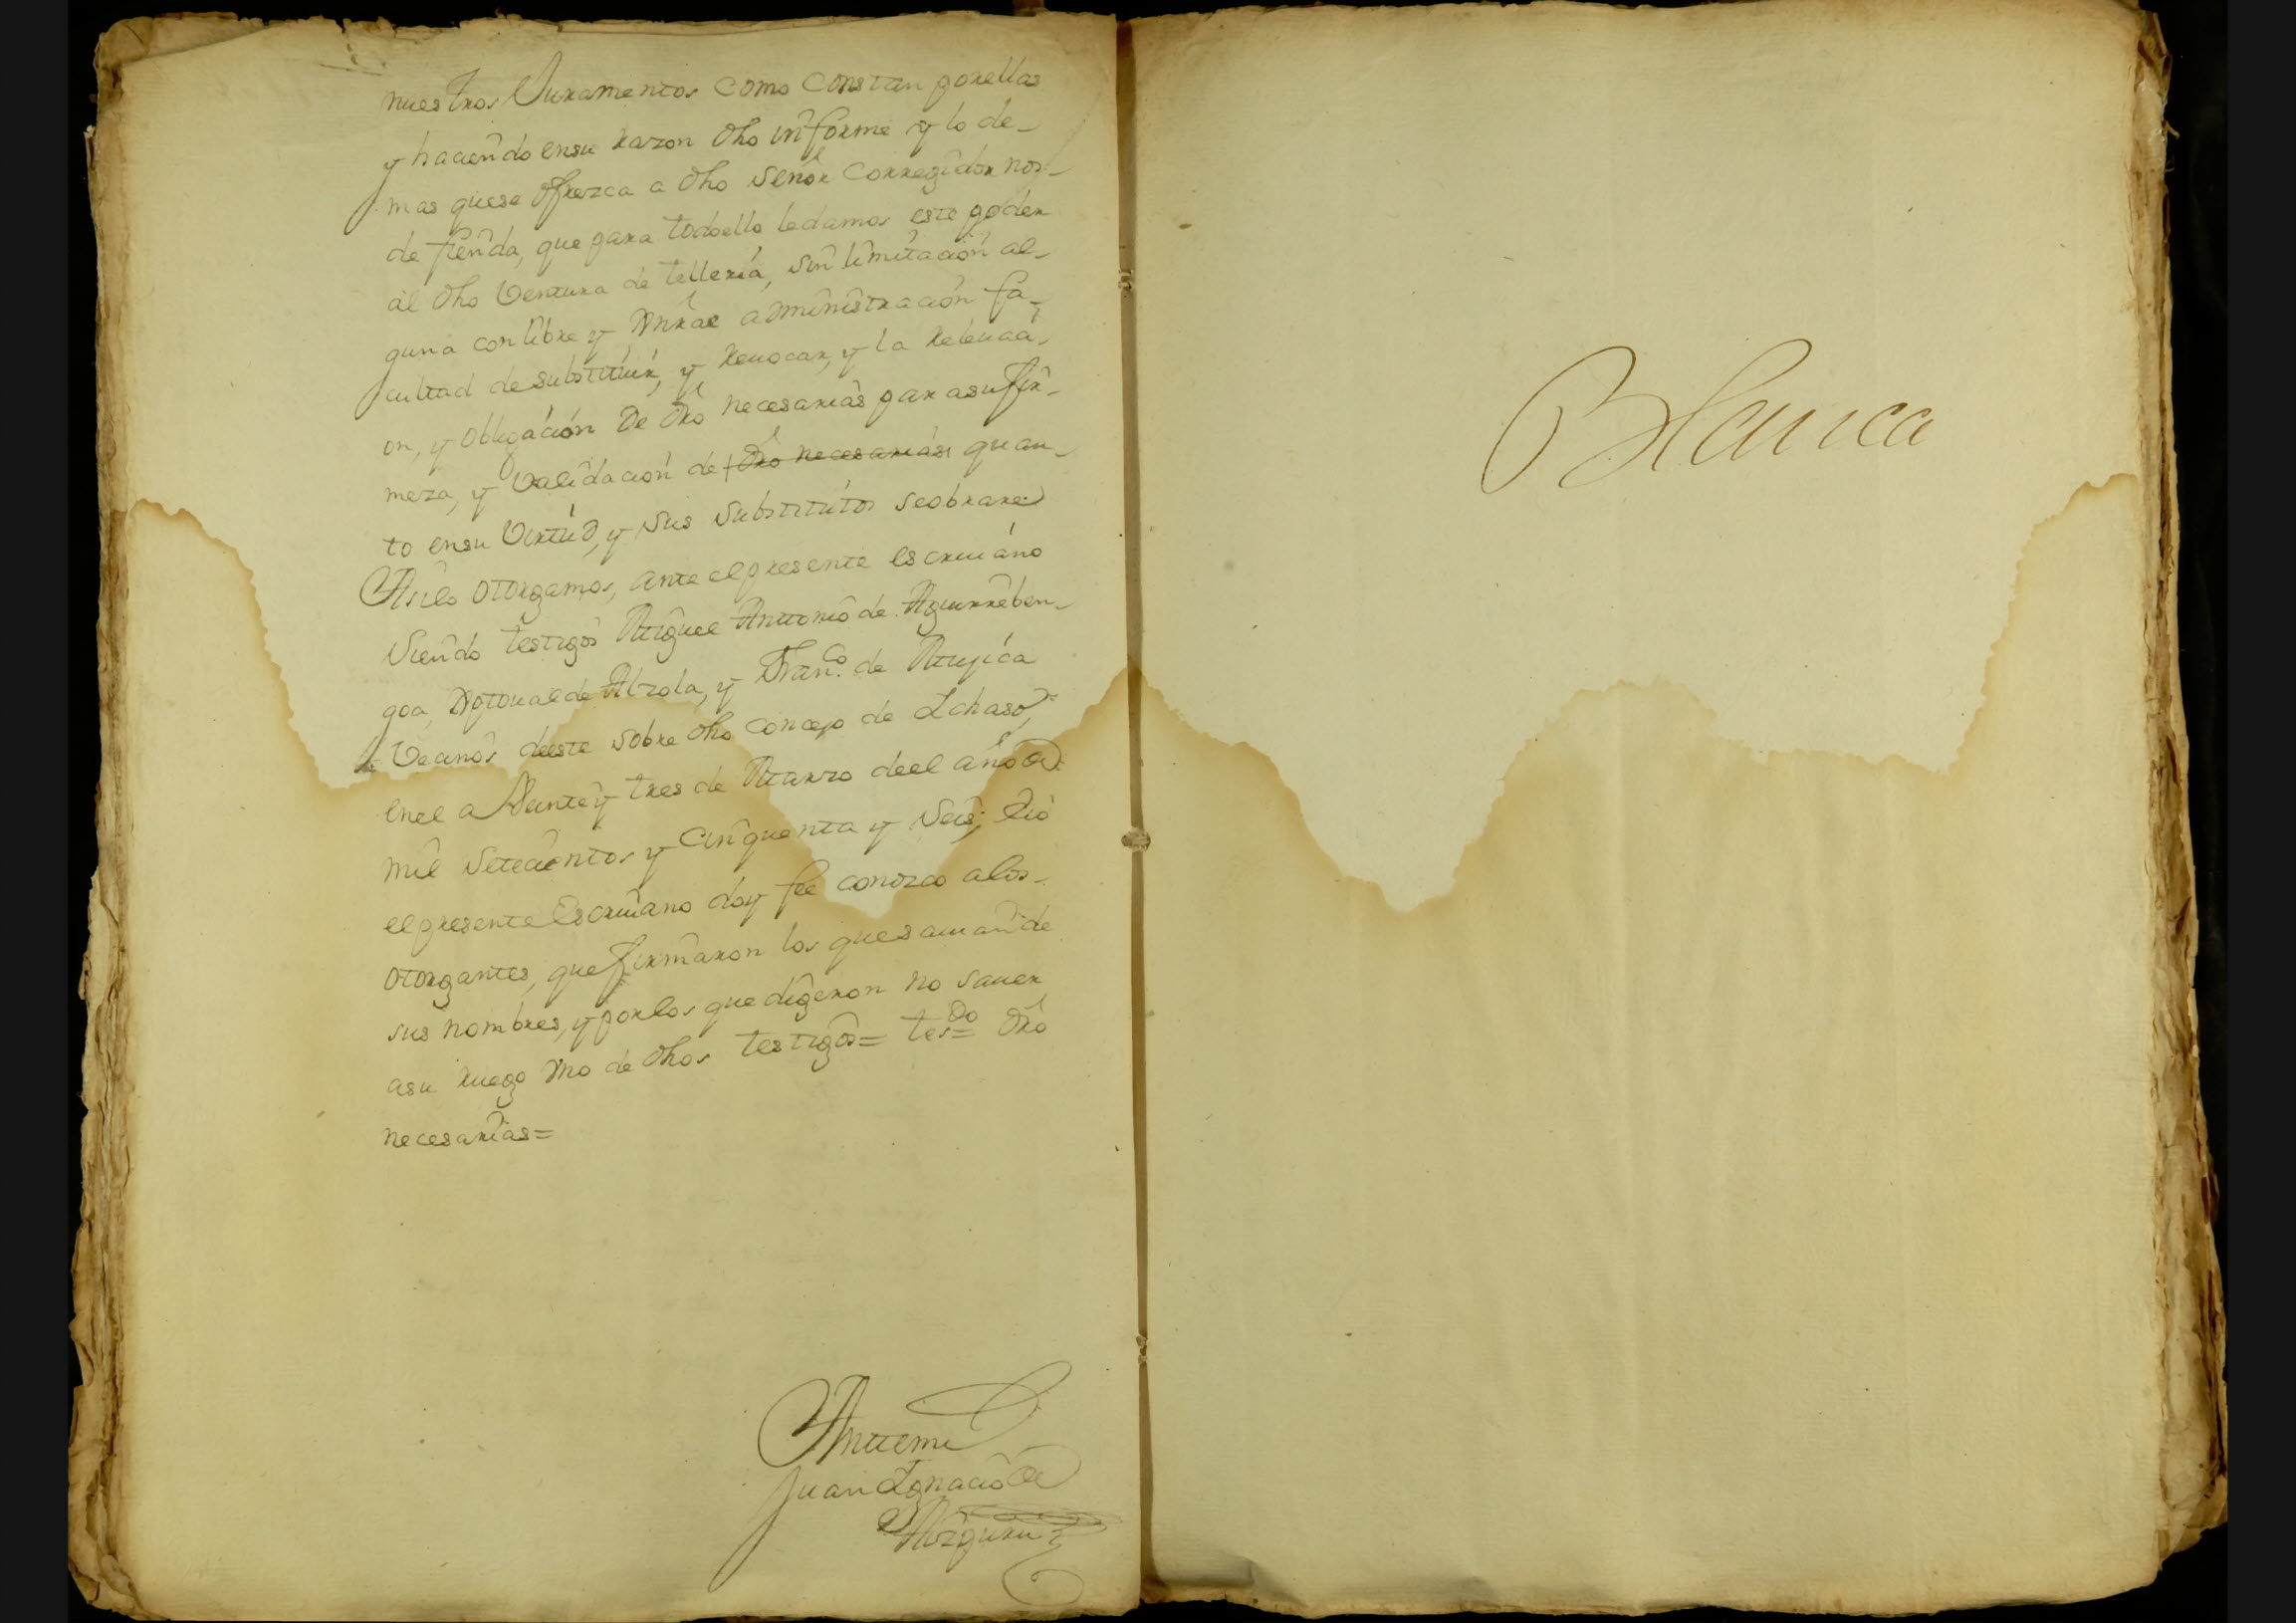 nuestros Juramentos como constan porellas
y haciendo ensu razon dho informe y lo de-
mas quese ofrezca a dho señor Corregidor nos-
defienda, que para todoello ledamos este poder
al dho Ventura de telleria, sin limitacion al-
guna conlibre y gnrâl administración fa-
cultad desubstituir, y revocar, y la relevaci-
on, y obligación de dro necesarias para sufir-
meza, y validacion de dro necesarias quan-
to ensu Virtud, y sus substitutos seobrare
Asilo otorgamos, ante elpresente escrivano
siendo testigos Miguel Anttonio de Aguirreben-
goa, Xptoval de Alzola, y Fran.co de Mujica
Vecinos deeste sobre dho concejo de Ichaso,
enel a Veinte y tres de Marzo deel año de
mil setecientos y cinquenta y seis; Eio
elpresente Escrivano doy fee conozco alos-
otorgantes, que firmaron los quesavian de
sus nombres, y porlos que digeron no saver
asu ruego vno de dhos testigos= tes.do dro
necesarias=
Anttemi
Juan Ignacio de
Blanca